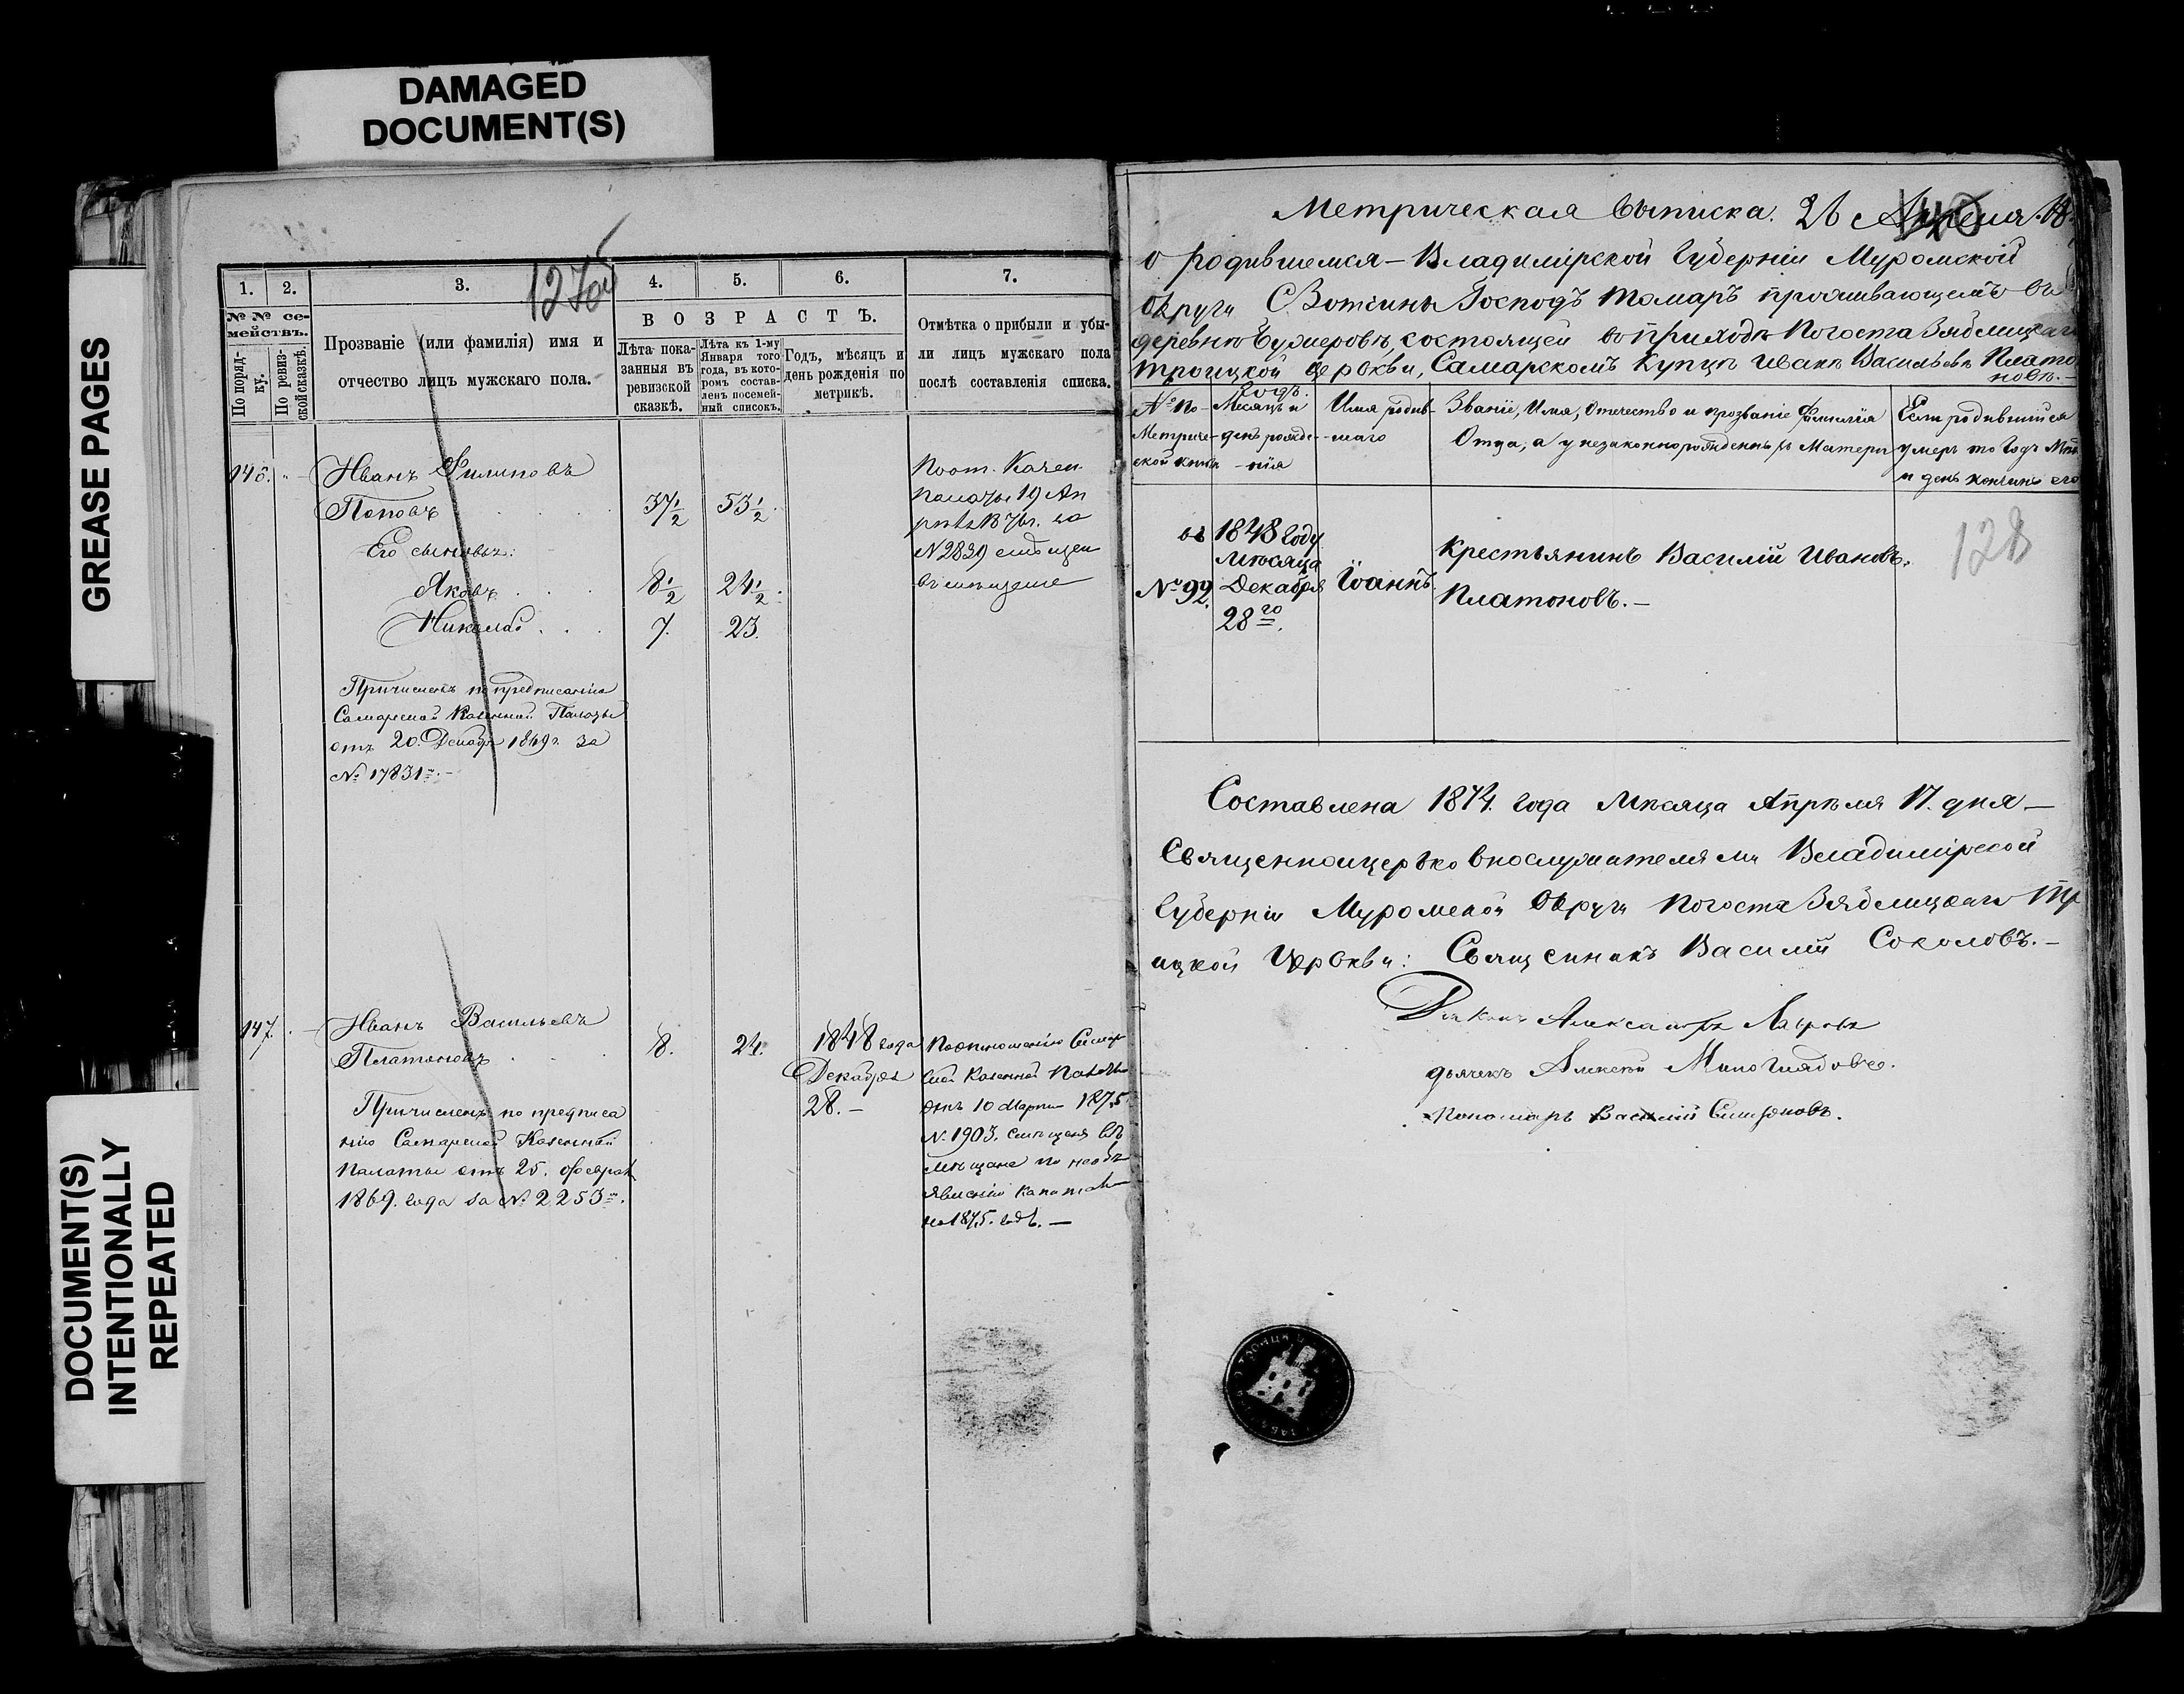 DAMAGED
DOCUMENT(S)
GREASE PAGES
DOCUMENT(S)
INTENTIONALLY
REPEATED
127об
1. 2. 3. 4. 5. 6. 7.
№ № се-
мействъ.
По поряд-
ку.
По ревиз-
ской сказкѣ.
Прозваніе (или фамилія) имя и
отчество лицъ мужскаго пола.
ВОЗРАСТЪ.
Лѣта пока-
занныя въ
ревизской
сказкѣ.
Лѣта къ 1-му
Января того
года, въ кото-
ромъ состав-
ленъ посемей-
ный списокъ.
Годъ, мѣсяцъ и
день рожденія по
метрикѣ.
Отмѣтка о прибыли и убы-
ли лицъ мужскаго пола
послѣ составленія списка.
146. Иванъ Филиповъ
Поповъ 37½ 53½
Его сыновья:
Яковъ 8½ 24½
Николай 7. 23.
По от. Казен
палаты 19 Ап
за
№ 2839
Причисленъ по предписанію
Самарской Казенной Палаты
отъ 20. Декабр 1869 г. за
№ 17831
147. Иванъ Васильевъ
Платоновъ 8. 24. 1848 года
Декабря
28.
Причисленъ по предписа
нію Самарской Казенной
Палаты отъ 25. февраля
1869. года за № 2253
По отношенію Самар
ской Казенной Палаты
отъ 10 Марта 1875
№ 1903.
мѣщане по необъ
явленію капитала
на 1875. годъ.
Метрическая выписка. 26 Апреля
о родившемся – Владимірской Губерніи Муромской
Округи С Вотчины Господъ Томаръ проживающемъ въ
деревне состоящей въ приходѣ Погоста Зяблицкаго
Троицкой церокви, Самарскомъ Купцѣ Иванѣ Васильевѣ Плато
новѣ.
№ по
Метриче-
ской книги
Годъ.
Месяцъ и
день рожде-
нія
Имя родив-
шаго
Званіе, Имя, Отечество и прозваніе Фамилія
Отца, а у незаконнорожденныхъ Матери
Если родившийся
умеръ то Годъ
и день кончины его
№ 92
въ 1848 году
мѣсяца
Декабря
28го.
Іоаннъ.
Крестьянинъ Василій Ивановъ.
Платоновъ.–
128
Составлена 1874. года Мѣсяца Апрѣля 17. дня –
Священноцерковнослужителями Владимірской
Губерніи Муромской Округи Погоста Зяблицкаго Тр
ицкой Церокви: Священникъ Василій Соколовъ.–
Діаконъ Александръ Лавровъ
дьячекъ Алексѣй
Пономарь Василій